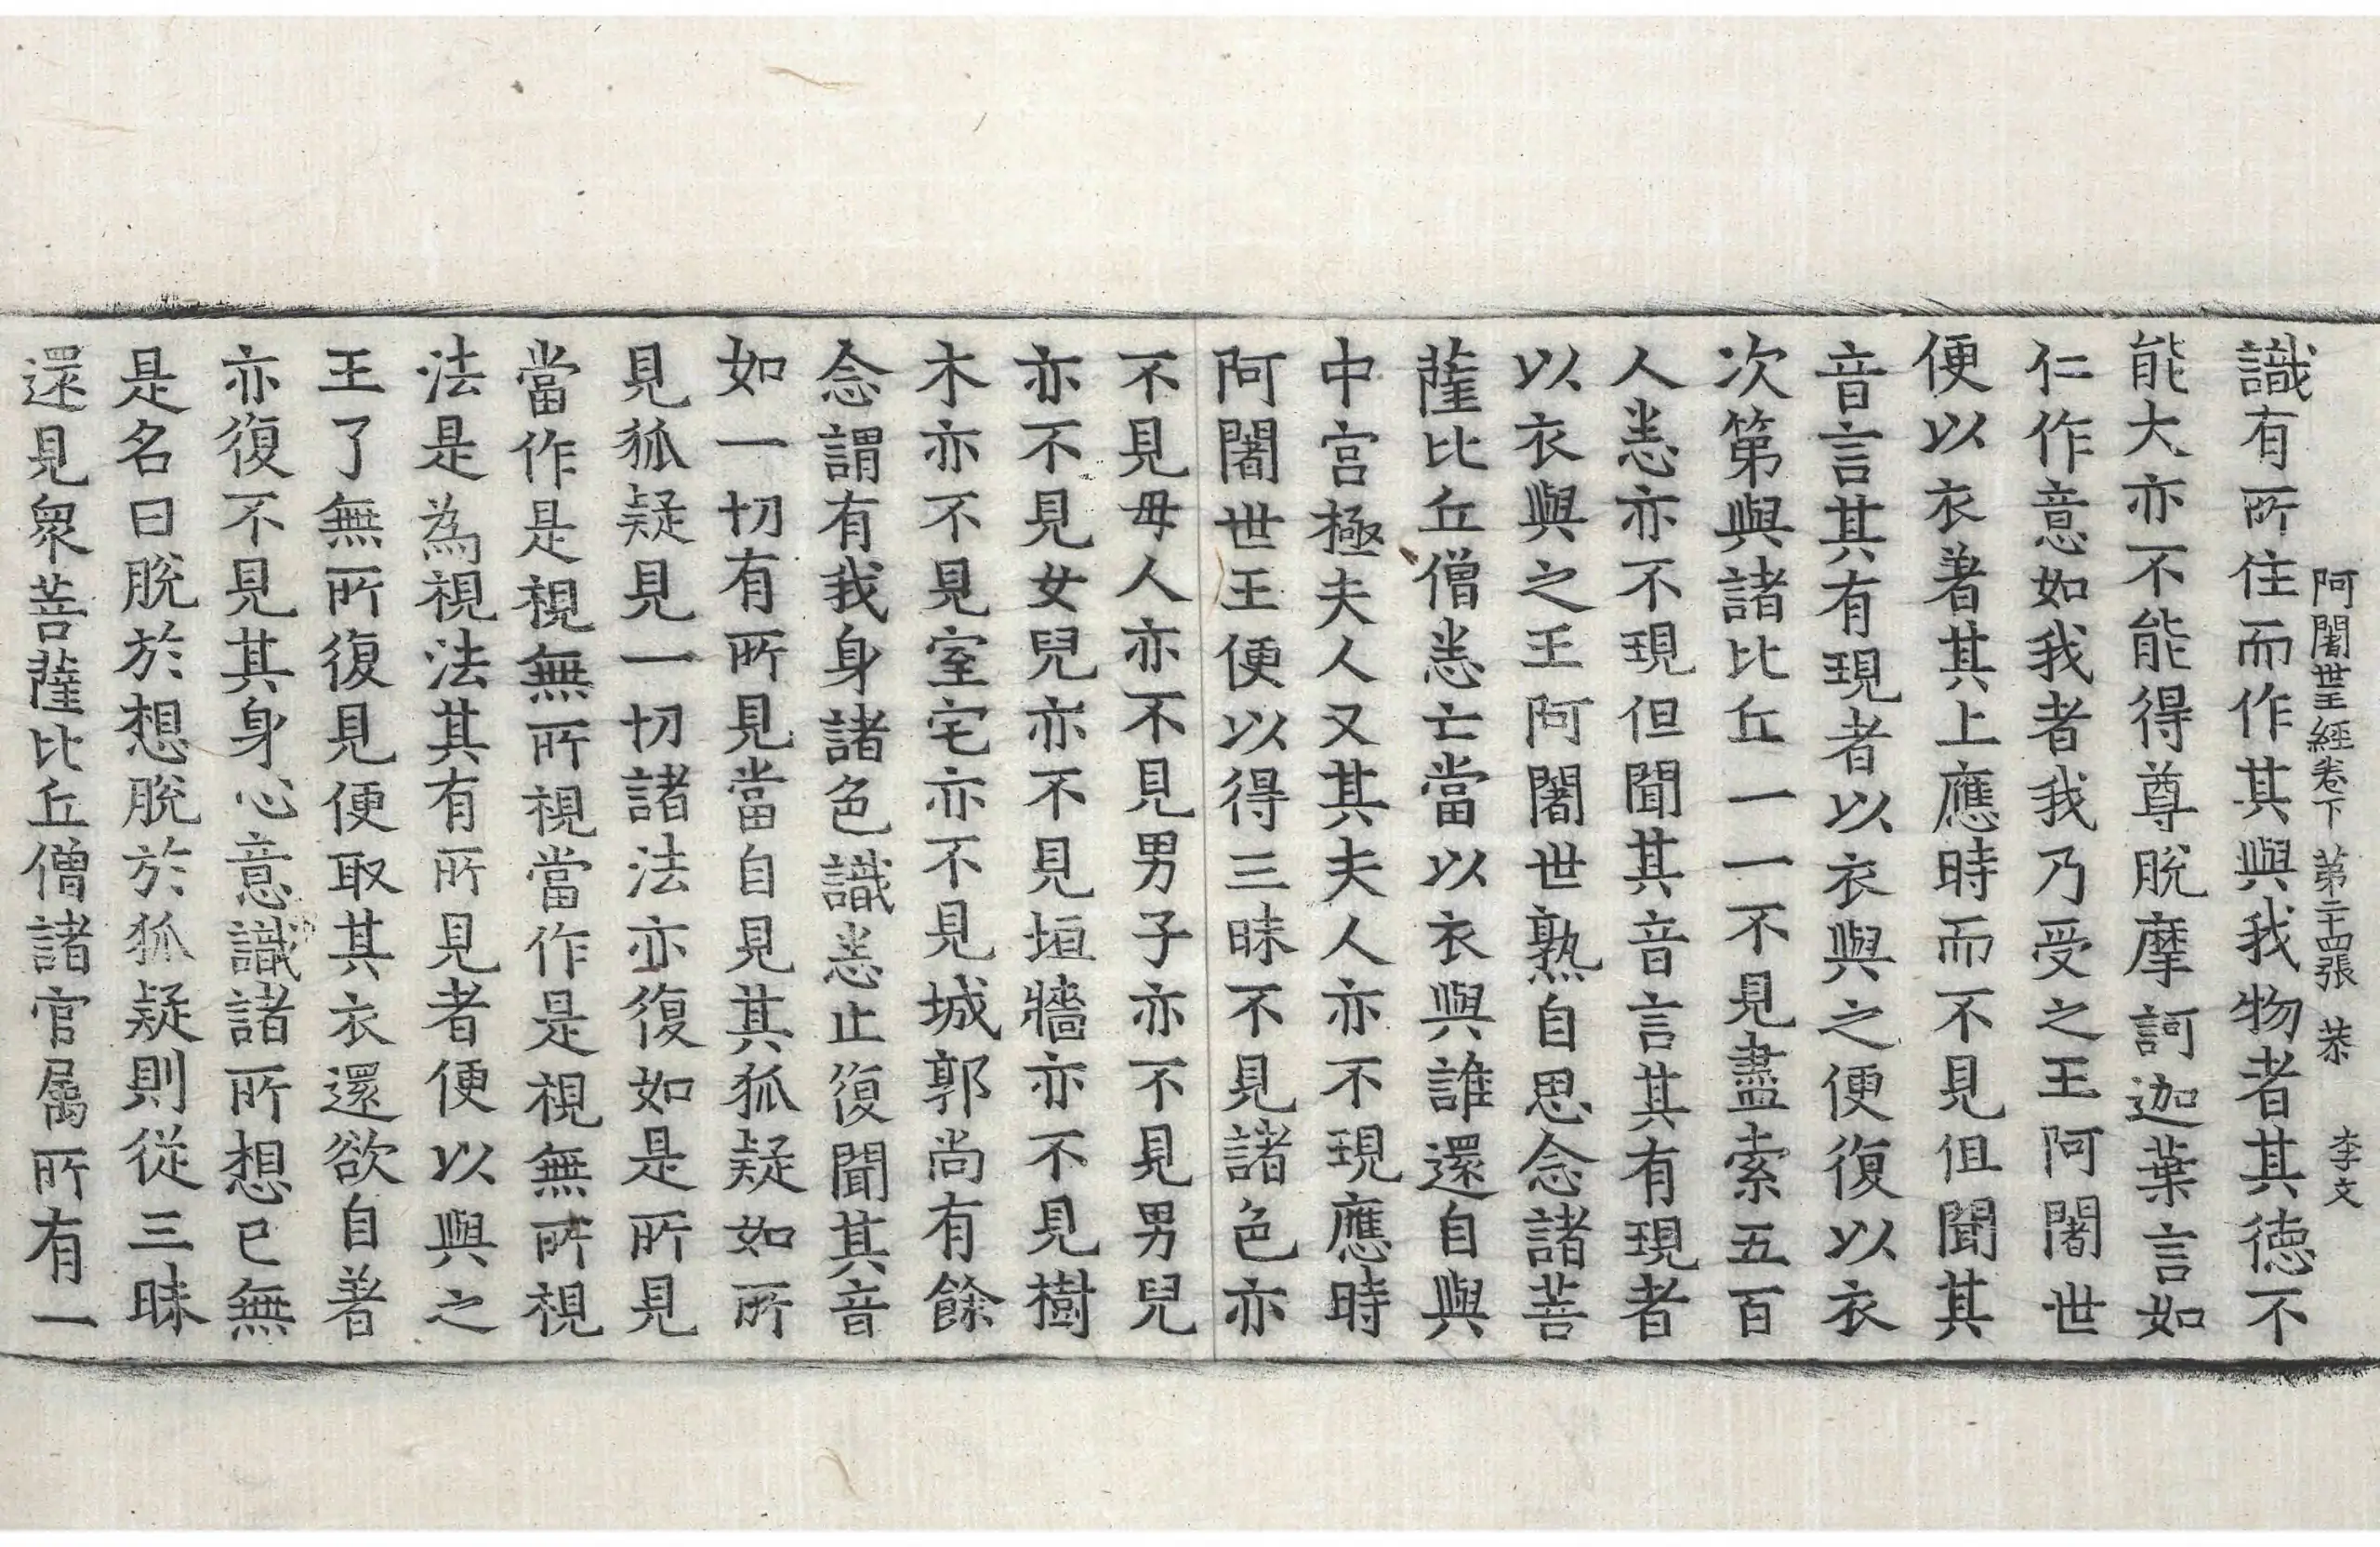 阿闍世王經卷下 第二十四張 恭 李文
識有所住而作其與我物者其德不
能大亦不能得尊脫摩訶迦葉言如
仁作意如我者我乃受之王阿闍世
便以衣著其上應時而不見但聞其
音言其有現者以衣與之便復以衣
次第與諸比丘一一不見盡索五百
人悉亦不現但聞其音言其有現者
以衣與之王阿闍世熟自思念諸菩
薩比丘僧悉亡當以衣與誰還自與
中宮極夫人又其夫人亦不現應時
阿闍世王便以得三昧不見諸色亦
不見母人亦不見男子亦不見男兒
亦不見女兒亦不見垣牆亦不見樹
木亦不見室宅亦不見城郭尚有餘
念謂有我身諸色識悉止復聞其音
如一切有所見當自見其狐疑如所
見狐疑見一切諸法亦復如是所見
當作是視無所視當作是視無所視
法是為視法其有所見者便以與之
王了無所復見便取其衣還欲自著
亦復不見其身心意識諸所想已無
是名曰脫於想脫於狐疑則從三昧
還見衆菩薩比丘僧諸官屬所有一